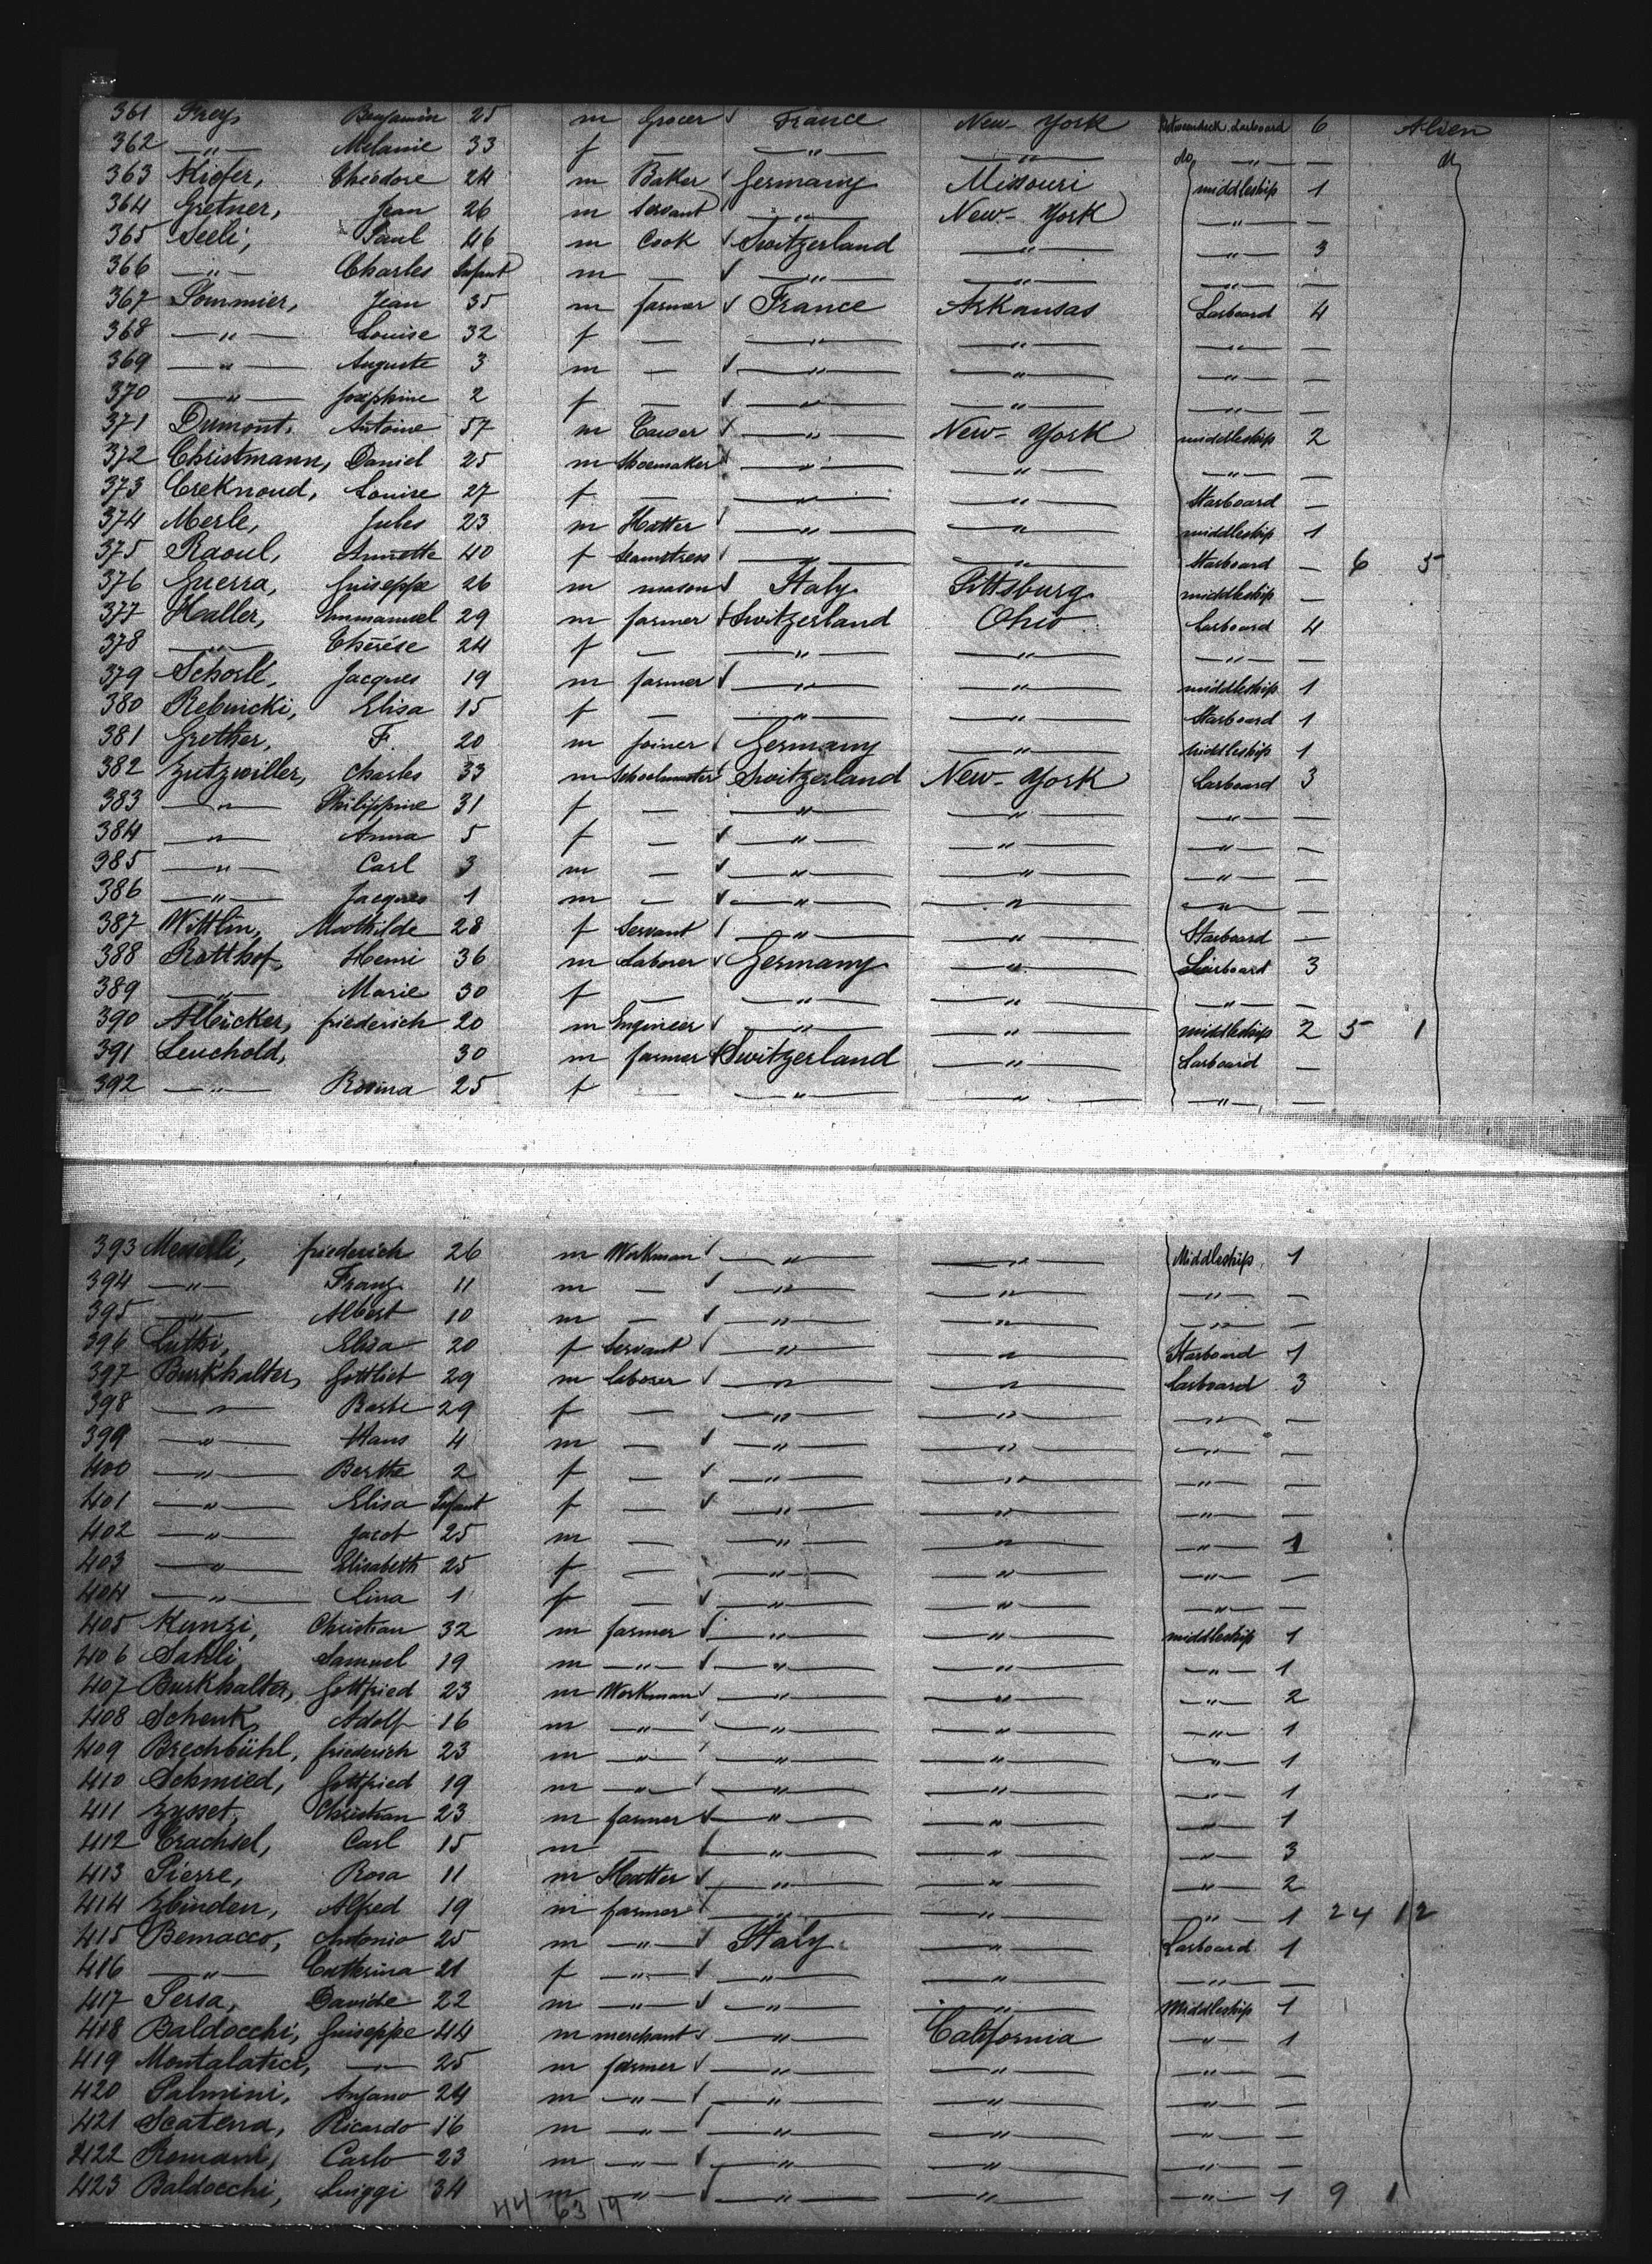 361 Frey, Benjamin 25 m Grocer France New-York Betweendeck Larboard 6 Alien
362 —"— Melanie 33 f — —"— —"— do —"— — d
363 Kiefer, Theodore 24 m Baker Germany Missouri middleship 1
364 Gretner, Jean 26 m Servant —"— New-York —"— —
365 Seeli, Paul 46 m Cook Switzerland —"— —"— 3
366 —"— Charles Infant m — —"— —"— —"— —
367 Pommier, Jean 35 m farmer France Arkansas Larboard 4
368 —"— Louise 32 f — —"— —"— —"— —
369 —"— Auguste 3 m — —"— —"— —"— —
370 —"— Joséphine 2 f — —"— —"— —"— —
371 Dumont, Antoine 57 m —"— New-York middleship 2
372 Christmann, Daniel 25 m Shoemaker —"— —"— —"— —
373 Creknoud, Louise 27 f — —"— —"— Starboard —
374 Merle, Jules 23 m Hatter —"— —"— middleship 1
375 Raoul, Annette 40 f Seamstress —"— —"— Starboard — 6 5
376 Guerra, Guiseppe 26 m mason Italy Pittsburg middleship —
377 Haller, Emmanuel 29 m farmer Switzerland Ohio Larboard 4
378 —"— Thérése 24 f — —"— —"— —"— —
379 Schorle, Jacques 19 m farmer —"— —"— middleship 1
380 Rebnicki, Elisa 15 f — —"— —"— Starboard 1
381 Grether, F. 20 m joiner Germany —"— Middleship 1
382 Zutzwiller, Charles 33 m Schoolmaster Switzerland New-York Larboard 3
383 —"— Philippine 31 f — —"— —"— —"— —
384 —"— Anna 5 f — —"— —"— —"— —
385 —"— Carl 3 m — —"— —"— —"— —
386 —"— Jacques 1 m — —"— —"— —"— —
387 Wittlin, Mathilde 28 f Servant —"— —"— Starboard —
388 Rotthof, Henri 36 m Laborer Germany —"— Larboard 3
389 —"— Marie 30 f — —"— —"— —"— —
390 Albicker, friederich 20 m Engineer —"— —"— middleship 2 5 1
391 Leuchold, 30 m farmer Switzerland —"— Larboard —
392 —"— Rosina 25 f — —"— —"— —"— —
393 Messerli, friederich 26 m Workman —"— —"— Middleship 1
394 —"— Franz 11 m — —"— —"— —"— —
395 —"— Albert 10 m — —"— —"— —"— —
396 Luthi, Elisa 20 f Servant —"— —"— Starboard 1
397 Burkhalter, Gottlieb 29 m laborer —"— —"— Larboard 3
398 —"— Barbe 29 f — —"— —"— —"— —
399 —"— Hans 4 m — —"— —"— —"— —
400 —"— Berthe 2 f — —"— —"— —"— —
401 —"— Elisa Infant f — —"— —"— —"— —
402 —"— Jacob 25 m — —"— —"— —"— 1
403 —"— Elisabeth 25 f — —"— —"— —"— —
404 —"— Lina 1 f — —"— —"— —"— —
405 Kunzi, Christian 32 m farmer —"— —"— middleship 1
406 Sahli, Samuel 19 m —"— —"— —"— —"— 1
407 Burkhalter, Gottfried 23 m Workman —"— —"— —"— 2
408 Schenk, Adolf 16 m —"— —"— —"— —"— 1
409 Brechbühl, friederich 23 m —"— —"— —"— —"— 1
410 Schmied, Gottfried 19 m —"— —"— —"— —"— 1
411 Zysset, Christian 23 m farmer —"— —"— —"— 1
412 Trachsel, Carl 15 m — —"— —"— —"— 3
413 Pierre, Rosa 11 m Hatter —"— —"— —"— 2
414 Zbinden, Alfred 19 m farmer —"— —"— —"— 1 24 12
415 Bemacco, Antonio 25 m —"— Italy —"— Larboard 1
416 —"— Catherina 21 f —"— —"— —"— —"— —
417 Persa, Davide 22 m —"— —"— —"— Middleship 1
418 Baldocchi, Guiseppe 44 m merchant —"— California —"— 1
419 Montalatici, —"— 25 m farmer —"— —"— —"— —
420 Palmini, Anfano 24 m —"— —"— —"— —"— —
421 Scatena, Ricardo 16 m —"— —"— —"— —"— —
422 Romani, Carlo 23 m —"— —"— —"— —"— —
423 Baldocchi, Luiggi 34 m —"— —"— —"— —"— 1 9 1
44 63 19